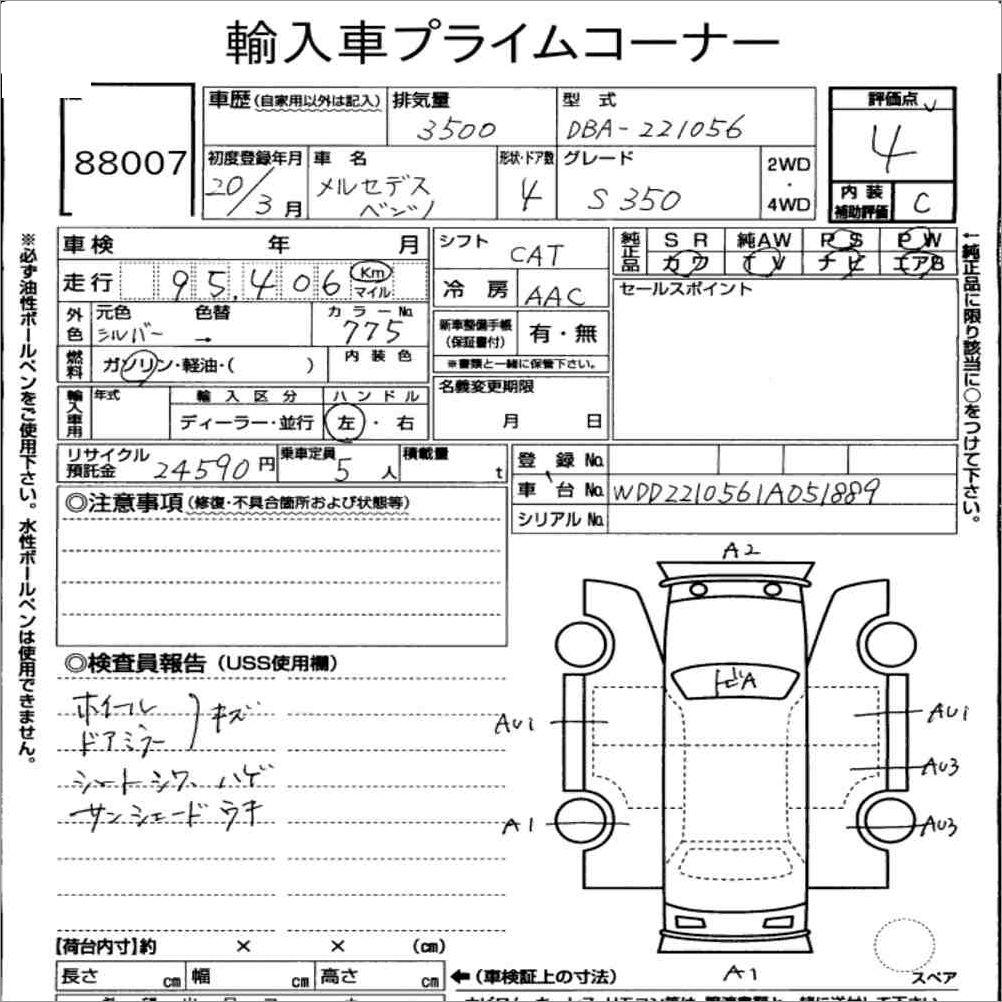 輸入車プライムコーナー
88007
車歴 (自家用以外は記入) 排気量 型式 評価点
3500 DBA-221056 4
初度登録年月 車名 形状・ドア数 グレード 2WD・4WD 内装補助評価
20/3月 メルセデスベンツ 4 S350 C
※必ず油性ボールペンをご使用下さい。水性ボールペンは使用できません。
車検 年 月 シフト CAT
走行 95,406 Km マイル 冷房 AAC
外色 元色 色替 カラーNo.
シルバー → 775
新車整備手帳(保証書付) 有・無
※書類と一緒に保管下さい。
燃料 ガソリン・軽油・( ) 内装色
輸入車用 年式 輸入区分 ハンドル
ディーラー・並行 左・右
名義変更期限
月 日
純正品 SR 純AW PS PW
カワ TV ナビ エアB
セールスポイント
←純正品に限り該当に○をつけて下さい。
リサイクル預託金 24590円 乗車定員 5人 積載量 t
登録No.
車台No. WDD2210561A051889
シリアルNo.
◎注意事項 (修復・不具合箇所および状態等)
◎検査員報告 (USS使用欄)
ホイール
ドアミラー ) キズ
シートシワ、ハゲ
サンシェードウキ
A2
トビA
AU1 AU1
AU3
A1 AU3
A1
スペア
【荷台内寸】約 × × (cm)
長さ cm 幅 cm 高さ cm ←(車検証上の寸法)